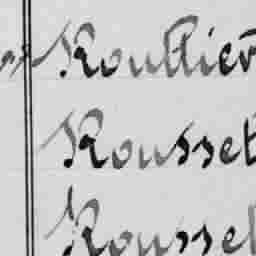 Roullier
Rousset
Rousset